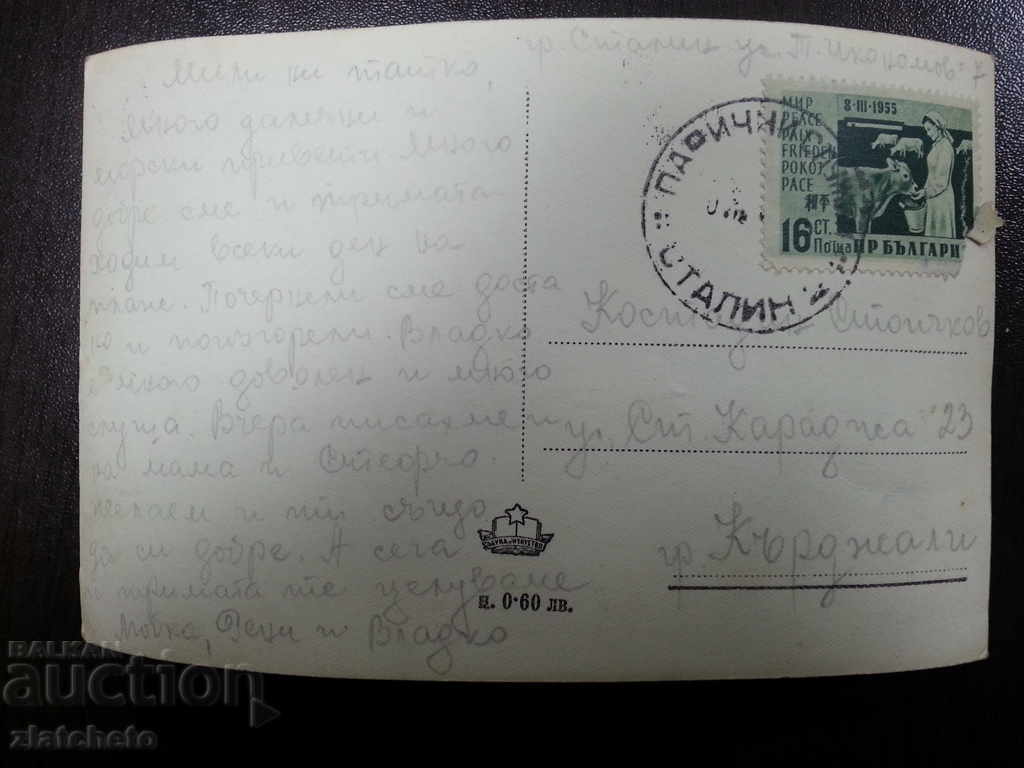 гр. Сталин ул. Т. Икономов 7
Мили ни татко,
Много далечни и
морски привети. Много
добре сме и тримата
ходим всеки ден на
плаж. Почернели сме доста
и поизгорели. Владко
е много доволен и много
слуша. Вчера писахме и
на мама и Стефчо.
Желаем и ти също
да си добре. А сега
тримата те целуваме
Мочка, Феци и Владко
МИР
PEACE
PAIX
FRIEDEN
POKÓJ
PACE
和平
8-III-1955
16 СТ.
Поща НР БЪЛГАРИ
СТАЛИН
Стоичков
ул. Ст. Караджа 23
гр. Кърджали
НАУКА И ИЗКУСТВО
ц. 0·60 лв.
BALKAN
auction
zlatcheto